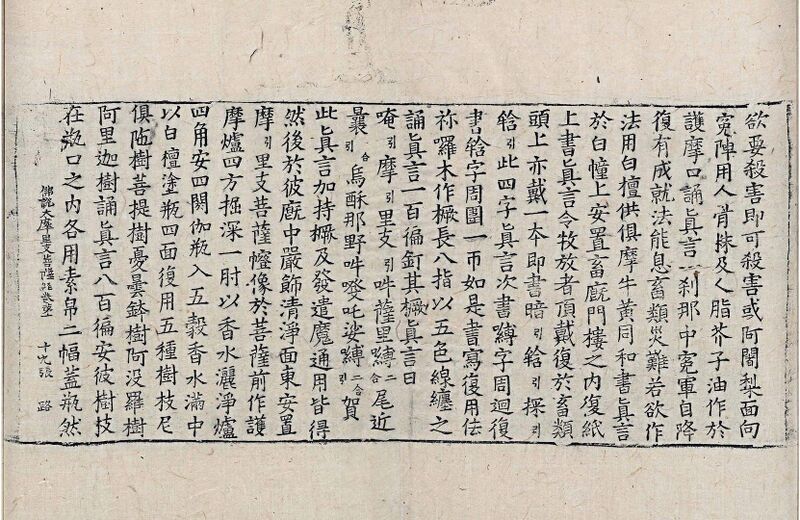 欲要殺害即可殺害或阿闍梨面向
寃陣用人骨抹及人脂芥子油作於
護摩口誦眞言一刹那中寃軍自降
復有成就法能息畜類災難若欲作
法用白檀供俱摩牛黃同和書眞言
於白幢上安置畜廐門樓之内復紙
上書眞言令牧放者頂戴復於畜類
頭上亦戴一本即書暗引𤚥引採引
𤚥引此四字眞言次書嚩字周迴復
書𤚥字周圍一帀如是書寫復用佉
祢羅木作橛長八指以五色線纏之
誦眞言一百徧釘其橛眞言曰
唵引摩引里支引吽薩里嚩二合尾近
曩引合烏酥那野吽發吒娑嚩引二合賀
此眞言加持橛及發遣魔通用皆得
然後於彼廐中嚴飾清淨面東安置
摩引里支菩薩㡧像於菩薩前作護
摩爐四方掘深一肘以香水灑淨爐
四角安四閼伽瓶入五穀香水滿中
以白檀塗瓶四面復用五種樹枝尼
俱陁樹菩提樹憂曇鉢樹阿没羅樹
阿里迦樹誦眞言八百徧安彼樹枝
佛説大摩里支菩薩經 十九張 路
在瓶口之内各用素帛二幅蓋瓶然